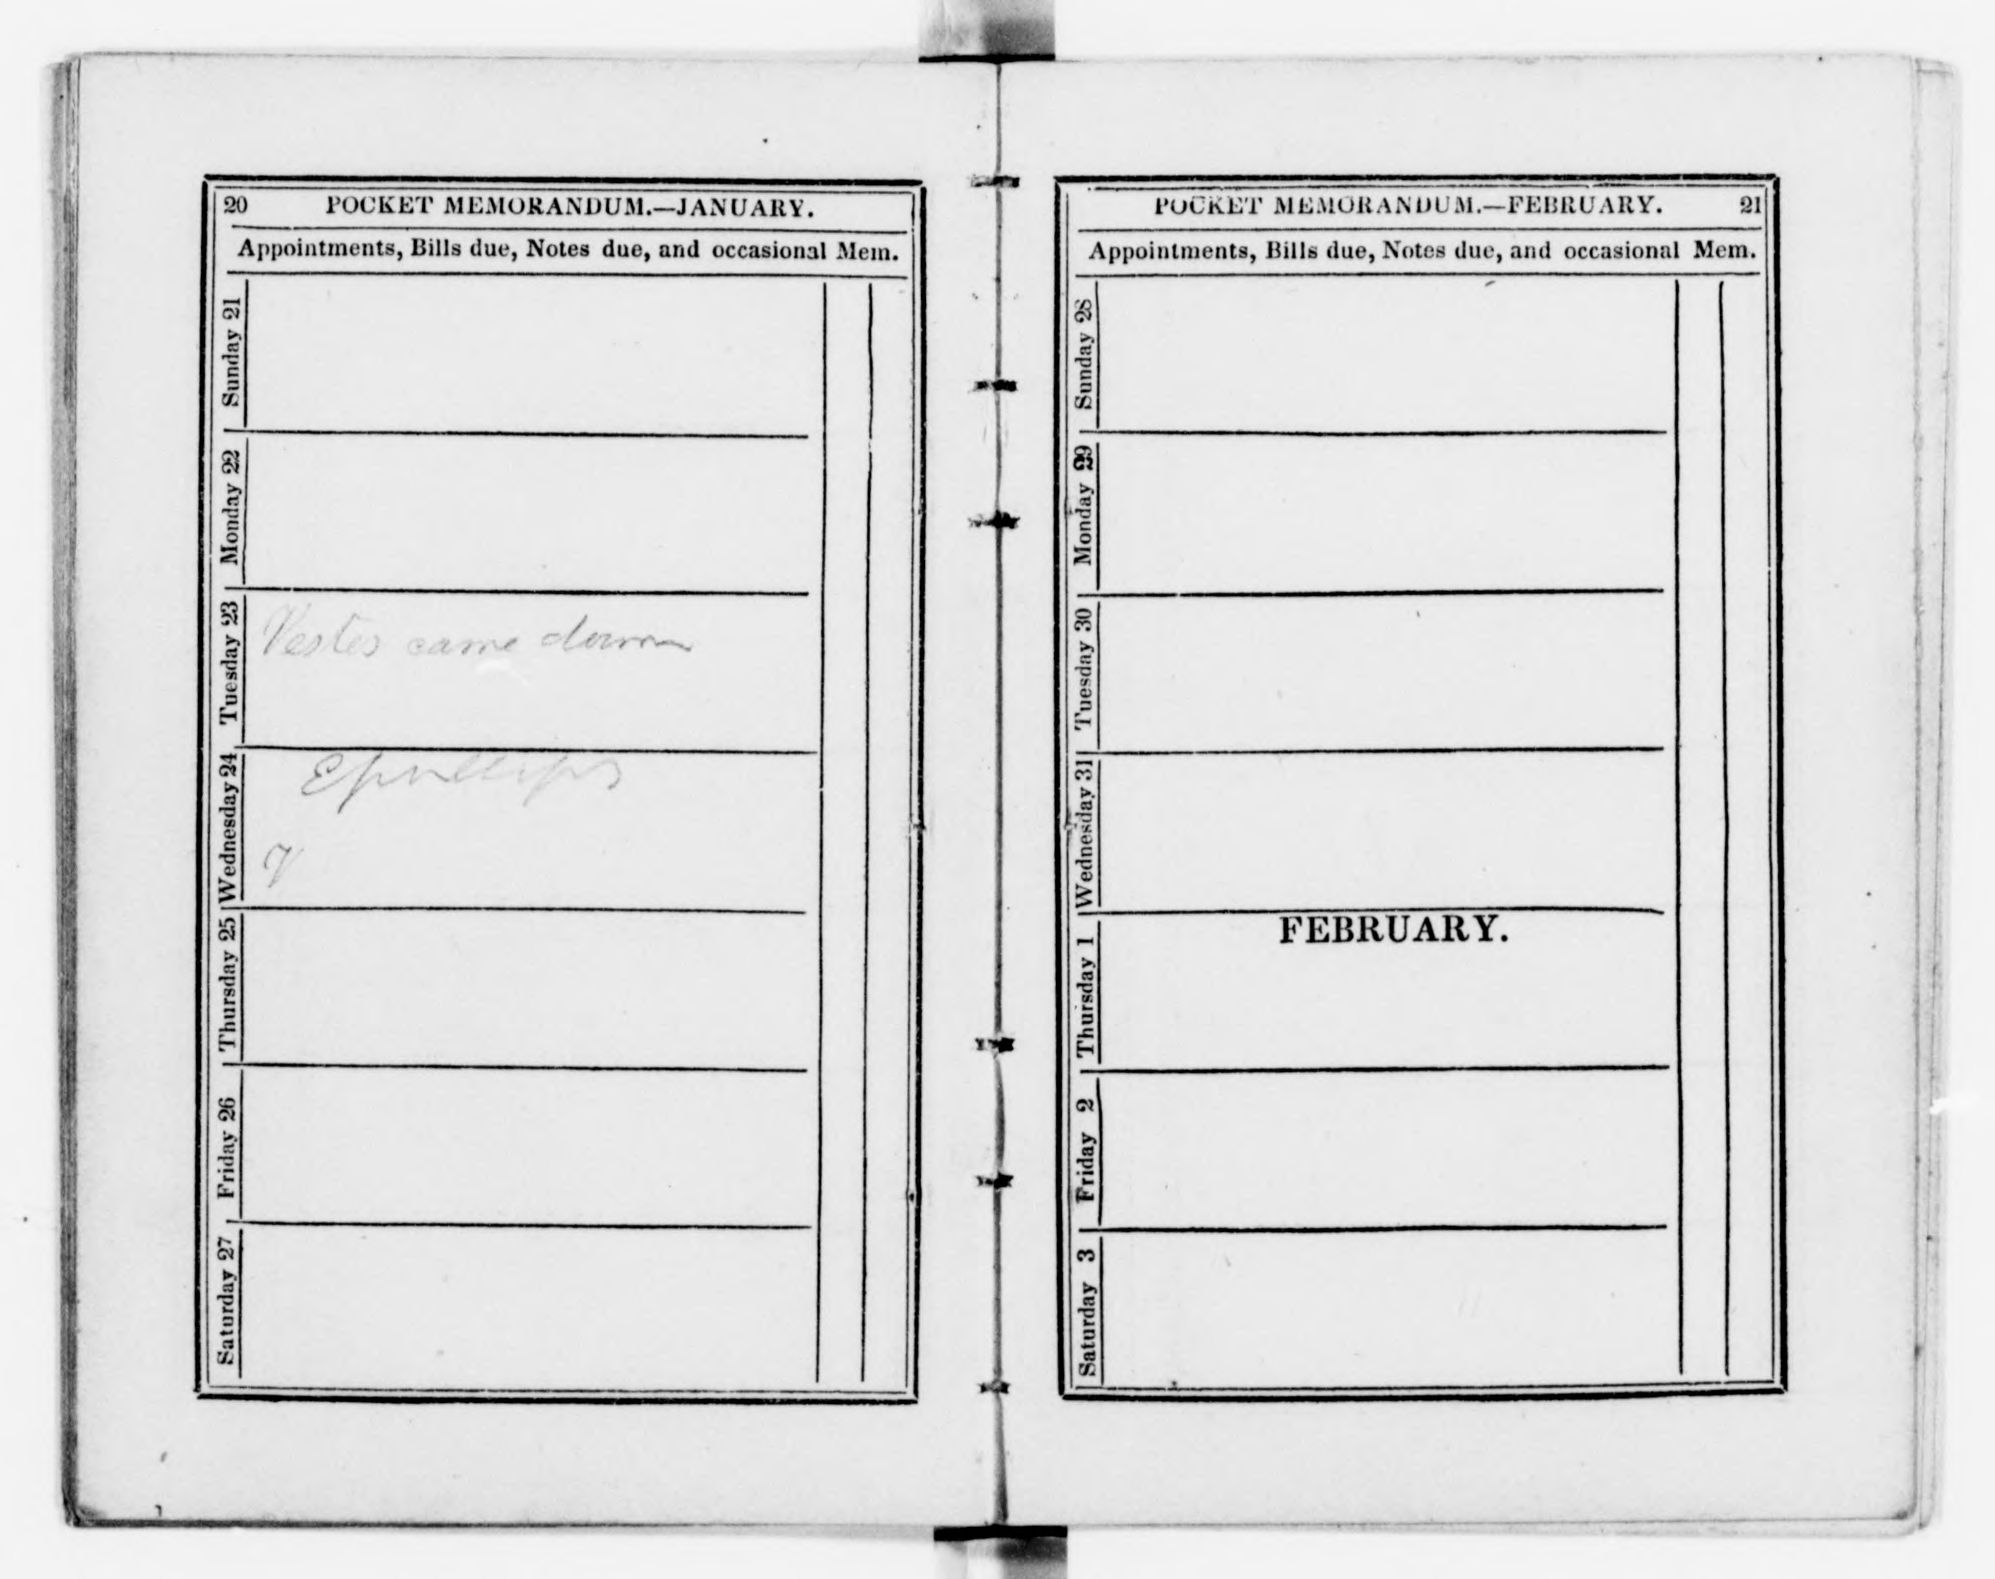 20 POCKET MEMORANDUM.—JANUARY.
Appointments, Bills due, Notes due, and occasional Mem.
Sunday 21
Monday 22
Tuesday 23
Vestes came down
Wednesday 24
V
Thursday 25
Friday 26
Saturday 27
POCKET MEMORANDUM.—FEBRUARY. 21
Appointments, Bills due, Notes due, and occasional Mem.
Sunday 28
Monday 29
Tuesday 30
Wednesday 31
FEBRUARY.
Thursday 1
Friday 2
Saturday 3